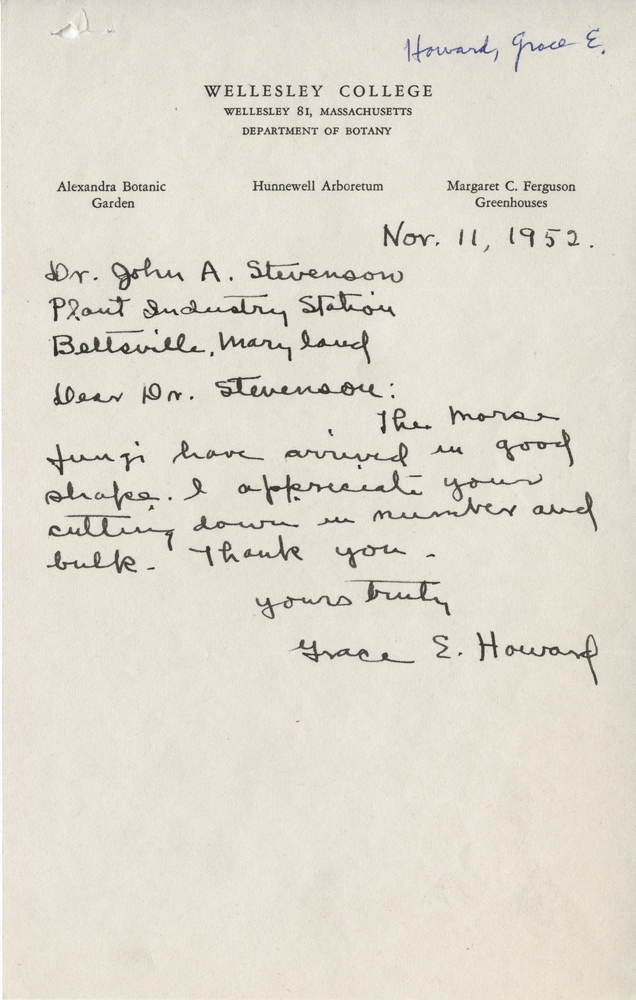 Howard, Grace E.
WELLESLEY COLLEGE
WELLESLEY 81, MASSACHUSETTS
DEPARTMENT OF BOTANY
Alexandra Botanic Garden
Hunnewell Arboretum
Margaret C. Ferguson Greenhouses
Nov. 11, 1952.
Dr. John A. Stevenson
Plant Industry Station
Beltsville, Maryland
Dear Dr. Stevenson:
The Morse
fungi have arrived in good
shape. I appreciate your
cutting down in number and
bulk. Thank you.
Yours truly
Grace E. Howard